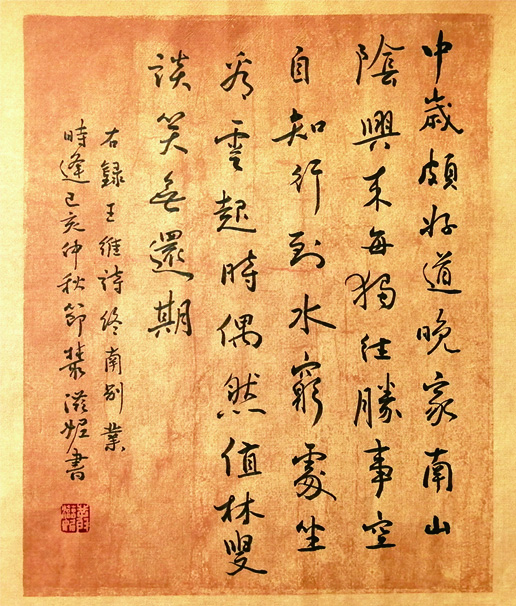 中歲頗好道晚家南山
陰興來每獨往勝事空
自知行到水窮處坐
看雲起時偶然值林叟
談笑無還期
右錄王維詩終南別業
時逢己亥仲秋節滋妮書